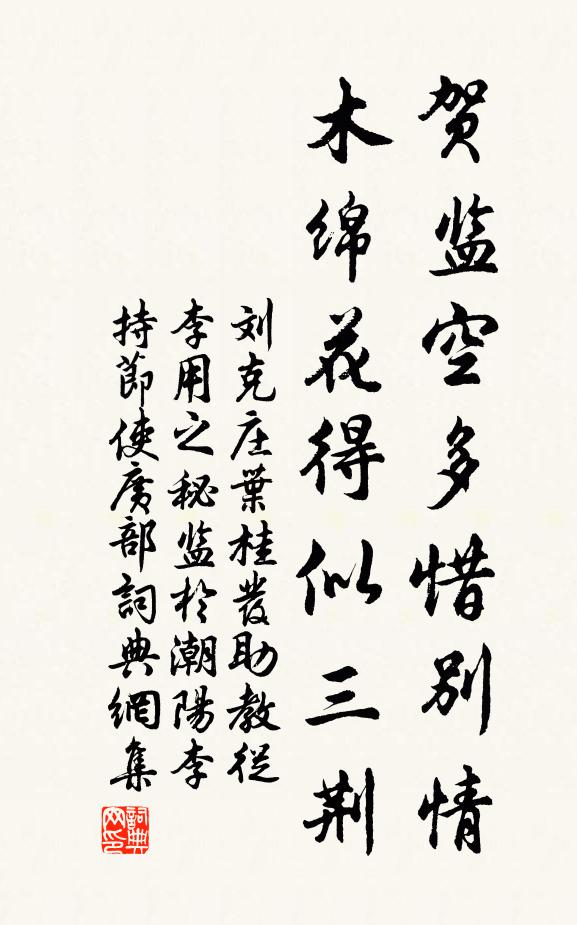 贺监空多惜别情
木绵花得似三荆
刘克庄葉桂發助教從
李用之秘监於潮陽李
持節使廣部詞典網集
詞典网印